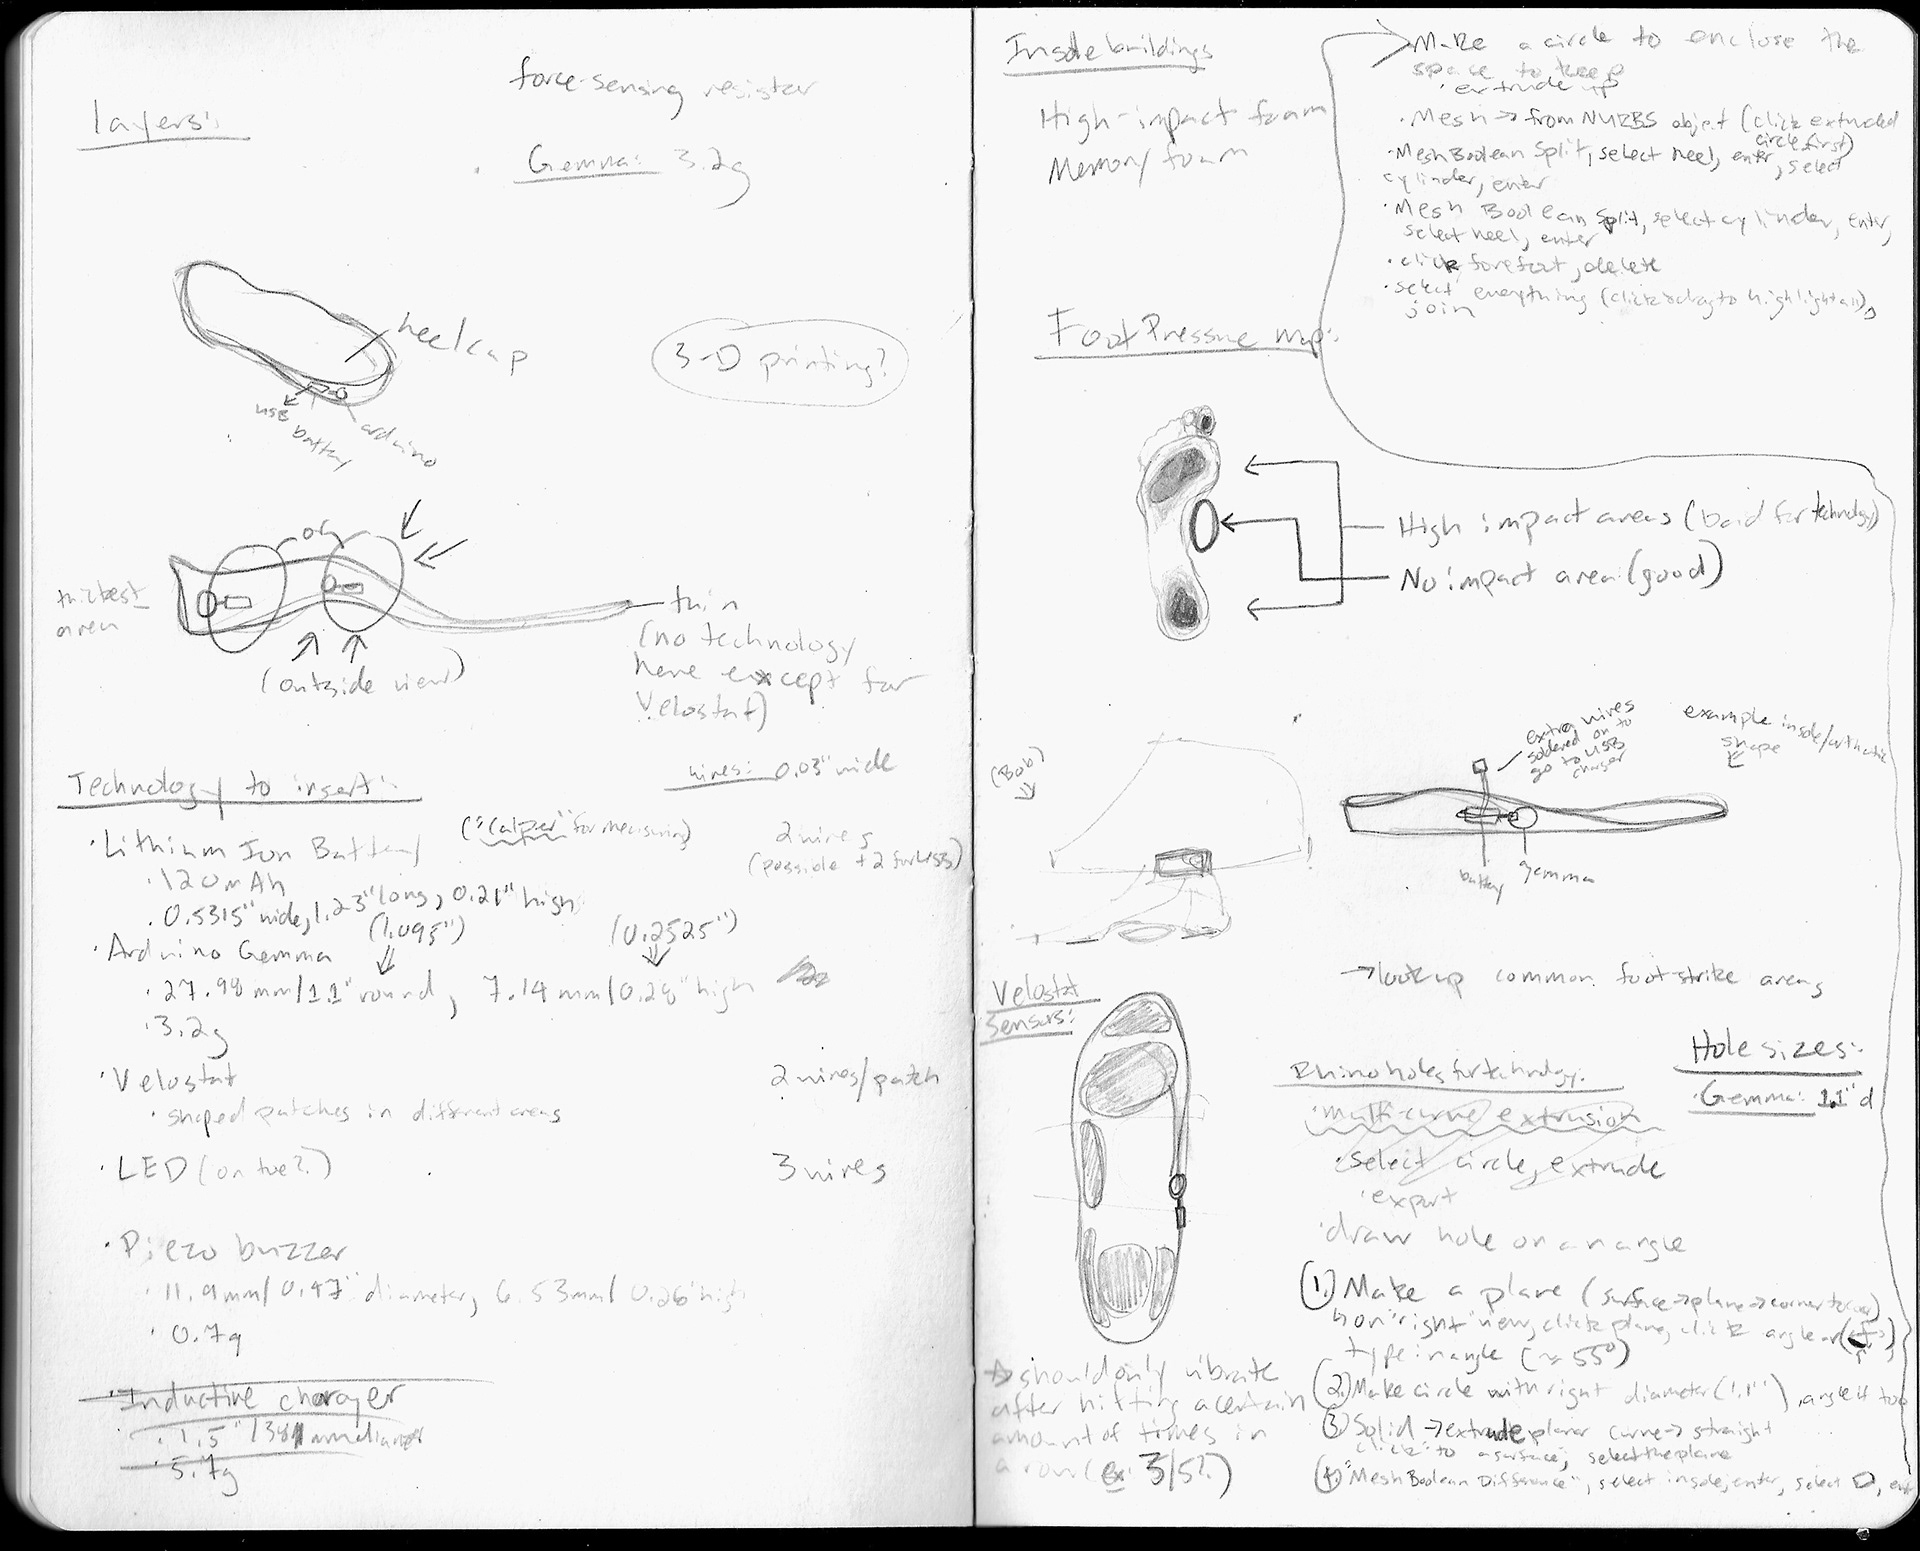 force-sensing resistor
layers:
Gemma: 3.2g
heelcap
3-D printing?
USB
battery
arduino
or
thickest
area
thin
(no technology
here except for
Velostat)
(outside view)
wires: 0.03" wide
Technology to insert:
("Caliper" for measuring)
2 wires
(possible +2 for USB)
· Lithium Ion Battery
· 120 mAh
· 0.5315" wide, 1.23" long, 0.21" high
(1.095")
(0.2525")
· Arduino Gemma
· 27.98 mm/1.1" round, 7.14 mm/0.28" high
· 3.2g
· Velostat
2 wires/patch
· shaped patches in different areas
· LED (on toe?)
3 wires
· Piezo buzzer
· 11.9mm/0.47" diameter, 6.53mm/0.26" high
· 0.7g
· Inductive charger
· 1.5"/38
· 5.7g
Insole buildings
High-impact foam
Memory foam
Make a circle to enclose the
space to keep
· extrude up
· Mesh → from NURBS object (click extruded
circle first)
· Mesh Boolean Split, select heel, enter, select
cylinder, enter
· Mesh Boolean Split, select cylinder, enter,
select heel, enter
· click forefoot, delete
· select everything (click & drag to highlight all),
join
Foot Pressure map:
High impact areas (bad for technology)
No impact area (good)
(Bob)
extra wires
soldered on to
go to USB
charger
example insole/orthotic
shape
battery
gemma
→ look up common foot strike areas
Velostat
Sensors:
Hole sizes:
· Gemma: 1.1" d
Rhino holes for technology:
· multi-curve extrusion
· select circle, extrude
· export
· draw hole on an angle
(1.) Make a plane (surface → plane → corner to corner)
↳ on "right" view, click plane, click angle
type in angle (≈ 55°)
(2.) Make circle with right diameter (1.1"), angle it too
(3.) Solid → extrude planar curve → straight
click "to a surface", select the plane
(4.) "Mesh Boolean Difference", select insole, enter, select
☆ should only vibrate
after hitting a certain
amount of times in
a row (ex: 3/5?)